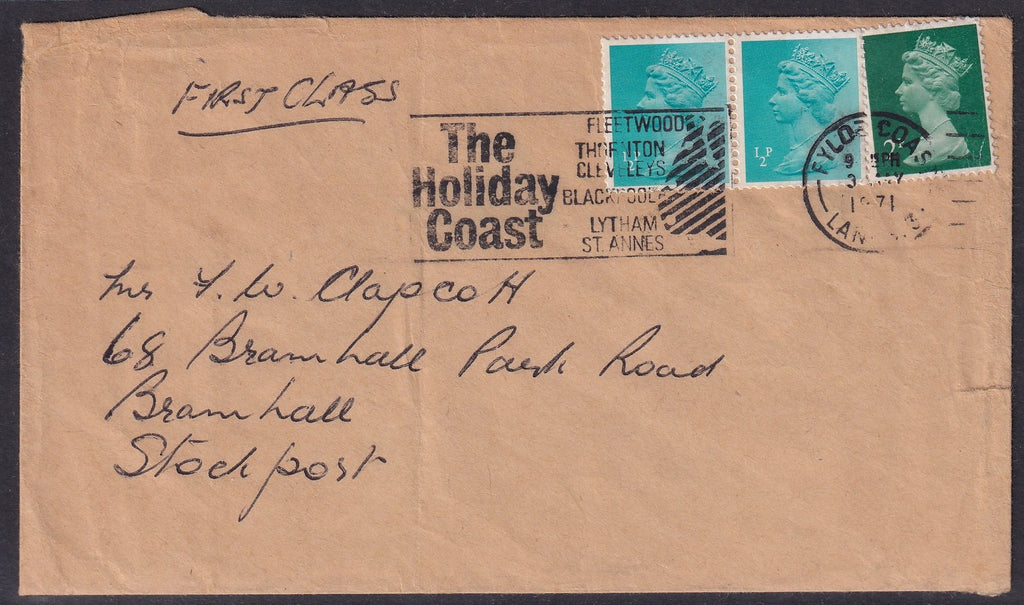 FIRST CLASS
The
Holiday
Coast
FLEETWOOD
THORNTON
CLEVELEYS
BLACKPOOL
LYTHAM
ST. ANNES
½P
½P
2
FYLDE COAST
9 PM
3
1971
LANCS
Mrs F. W. Clapcott
68 Bramhall Park Road
Bramhall
Stockport